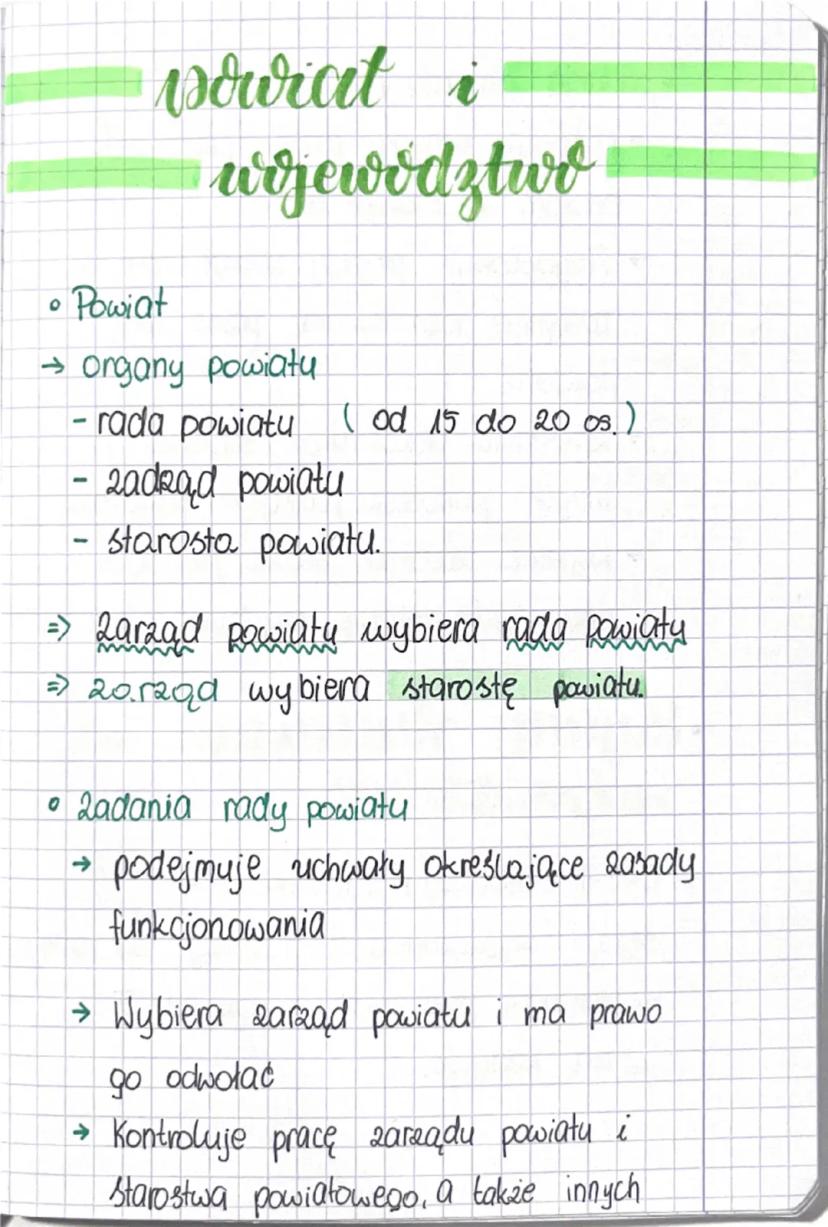 powiat i
województwo
• Powiat
→ organy powiatu
- rada powiatu ( od 15 do 20 os.)
- zadząd powiatu
- starosta powiatu.
=> zarząd powiatu wybiera rada powiatu
=> zarząd wybiera starostę powiatu.
• zadania rady powiatu
→ podejmuje uchwały określające zasady
funkcjonowania
→ Wybiera zarząd powiatu i ma prawo
go odwołać
→ Kontroluje pracę zarządu powiatu i
starostwa powiatowego, a także innych